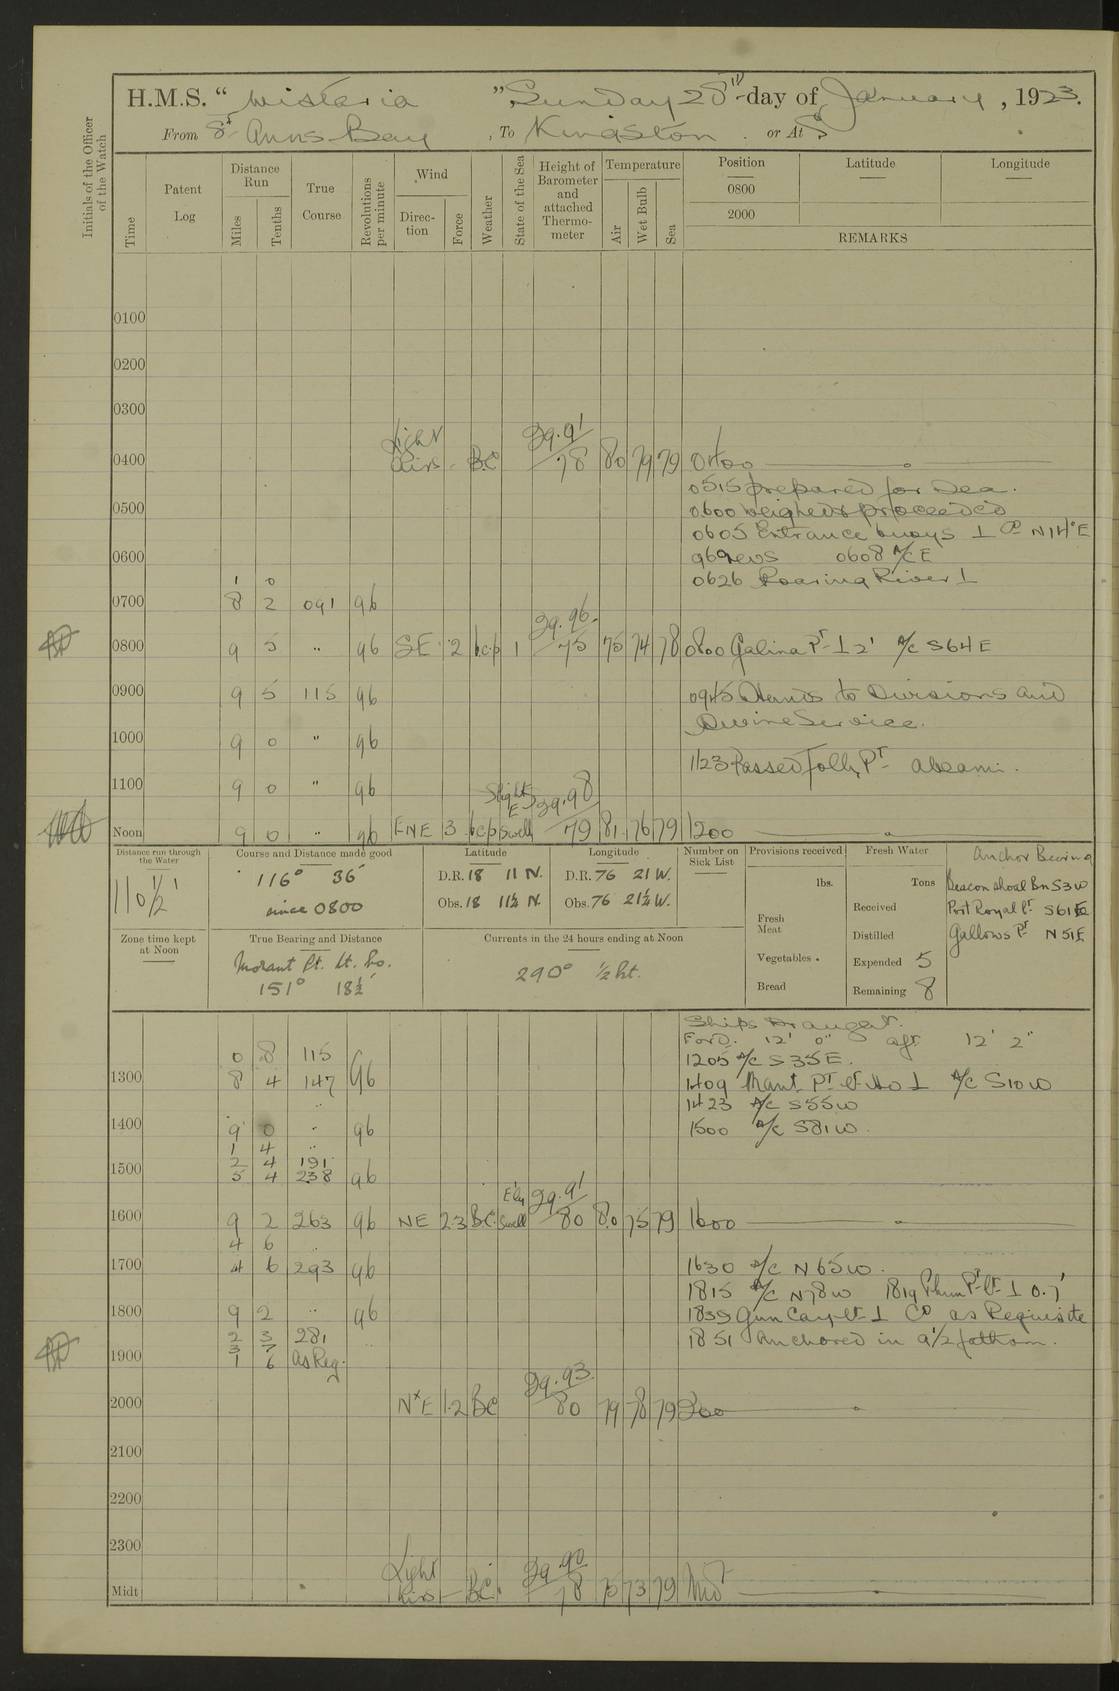 H.M.S. “ Wistaria ” Sunday 28th day of January, 1923.
From St Anns Bay, To Kingston. or At
Initials of the Officer of the Watch
Time
Patent Log
Distance Run
Miles
Tenths
True Course
Revolutions per minute
Wind
Direction
Force
Weather
State of the Sea
Height of Barometer and attached Thermometer
Temperature
Air
Wet Bulb
Sea
Position Latitude Longitude
0800
2000
REMARKS
0100
0200
0300
Light 29.91
0400 Airs - BC 78 80 79 79 0400
0515 prepared for Sea.
0500 0600 weighed & proceeded
0605 Entrance buoys ⊥ Co N14°E
0600 96 revs 0608 A/C E
1 0 0626 Roaring River ⊥
0700 8 2 091 96
29.96
0800 9 5 " 96 SE 2 bcp 1 75 75 74 78 0800 Galina Pt ⊥ 2' A/C S64E
0900 9 5 115 96 0945 Hands to Divisions and
Divine Service.
1000 9 0 " 96
1123 Passed Folly Pt abeam.
1100 9 0 " 96
Slight E 29.98
Noon 9 0 " 96 ENE 3 bcp Swell 79 81 76 79 1200
Distance run through the Water
110 1/2'
Course and Distance made good
116° 36'
since 0800
Latitude
D.R. 18 11 N.
Obs. 18 11½ N.
Longitude
D.R. 76 21 W.
Obs. 76 21¼ W.
Number on Sick List
Provisions received
lbs.
Fresh Meat
Vegetables
Bread
Fresh Water
Tons
Received
Distilled
Expended 5
Remaining 8
Anchor Bearing
Beacon Shoal Bn S3W
Port Royal Pt S61E
Gallows Pt N51E
Zone time kept at Noon
True Bearing and Distance
Morant Pt. Lt. Ho.
151° 18½'
Currents in the 24 hours ending at Noon
290° ½ kt.
Ships Draught.
Ford. 12' 0" aft 12' 2"
0 8 115 1205 A/C S35E.
1300 8 4 147 96 1409 Mant Pt Lt Ho ⊥ A/C S10W
1423 A/C S55W
1400 9 0 " 96 1500 A/C S81W
1 4 "
2 4 191
1500 5 4 238 96
E'ly 29.91
1600 9 2 263 96 NE 2.3 BC Swell 80 80 75 79 1600
4 6
1700 4 6 293 96 1630 A/C N65W.
1815 A/C N78W 1819 Plum Pt Lt ⊥ 0.7'
1800 9 2 " 96 1839 Gun Cay Lt ⊥ Co as Requisite
2 3 281 1851 Anchored in 9 1/2 fathom.
3 7
1900 1 6 as Req.
29.93
2000 NxE 1.2 BC 80 79 78 79 2000
2100
2200
2300
Light 29.90
Midt Airs - BC. 78 75 73 79 Midt